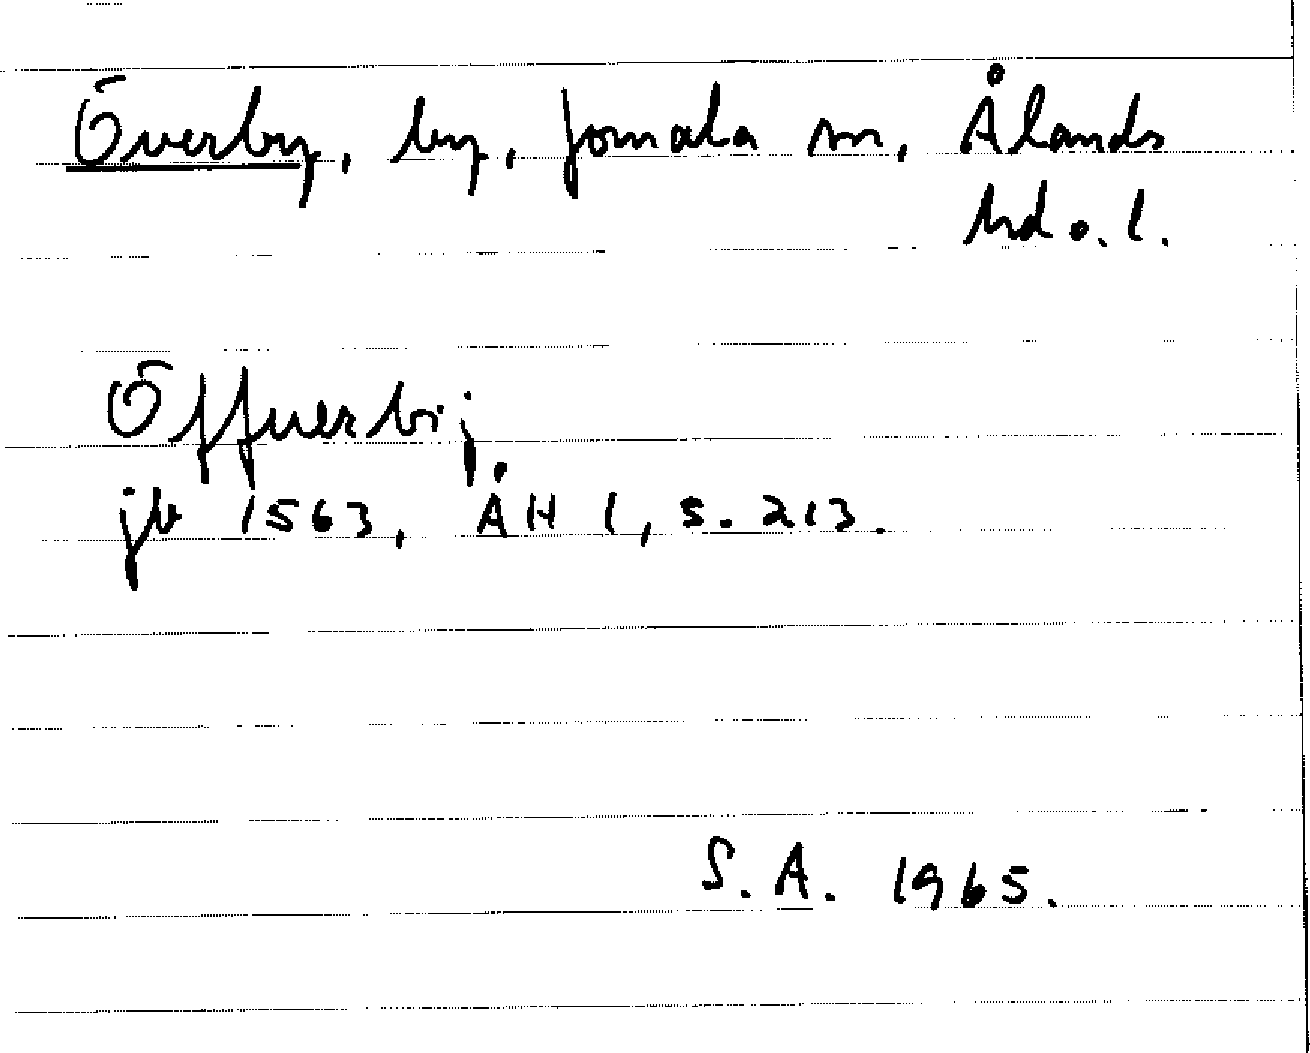 Överby, by, Jomala sn, Ålands
hd o. l.
Öffuerbij
jb 1563, ÅH 1, s. 213.
S. A. 1965.